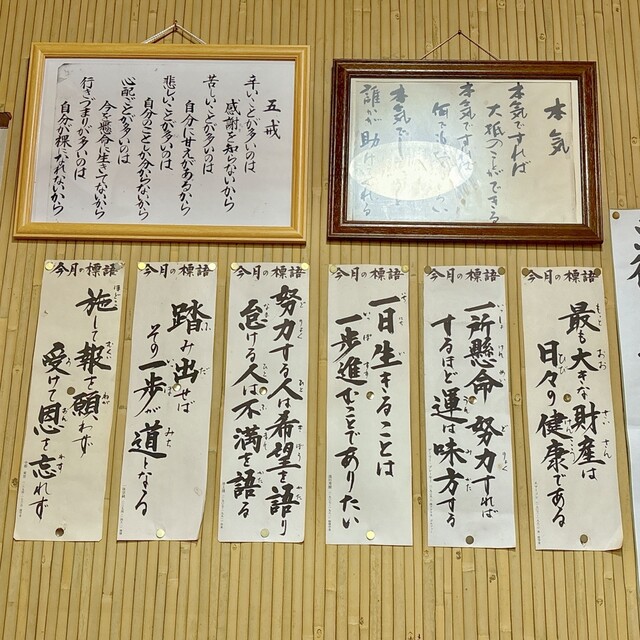 五戒
辛いことが多いのは
感謝を知らないから
苦しいことが多いのは
自分に甘えがあるから
悲しいことが多いのは
自分のことしか分からないから
心配ごとが多いのは
今を懸命に生きてないから
行きづまりが多いのは
自分が裸になれないから
本気
本気ですれば
大抵のことができる
本気ですれば
何でも
本気でして
誰かが助けてくれる
今月の標語
最も大きな財産は
日々の健康である
今月の標語
一所懸命努力すれば
するほど運は味方する
今月の標語
一日生きることは
一歩進むことでありたい
今月の標語
努力する人は希望を語り
怠ける人は不満を語る
今月の標語
踏み出せば
その一歩が道となる
今月の標語
施して報を願わず
受けて恩を忘れず